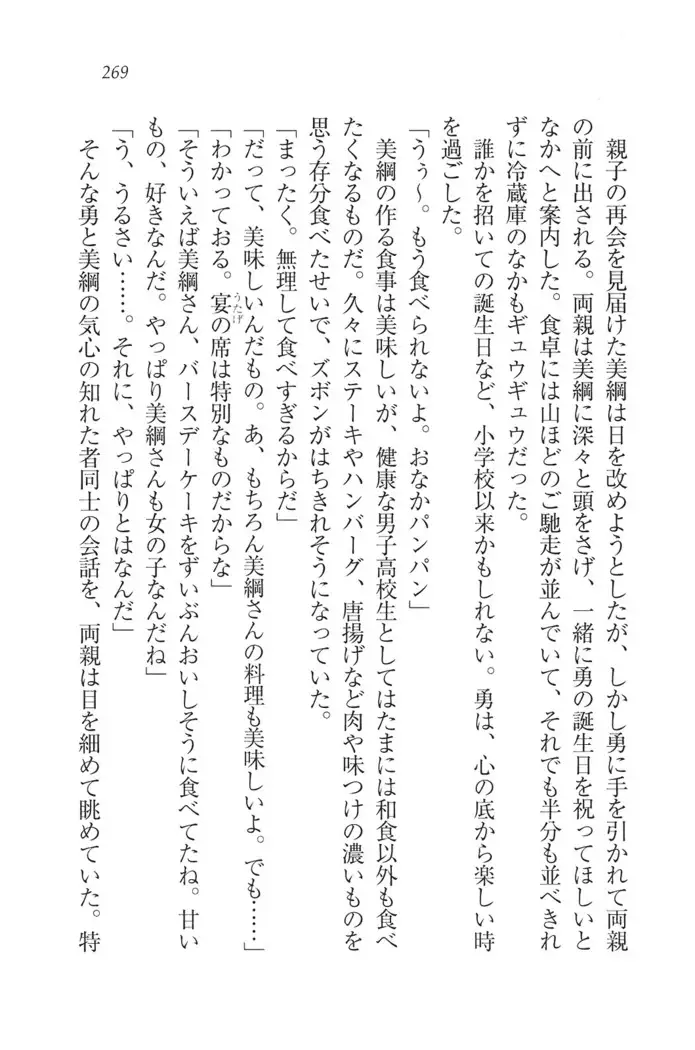 269
親子の再会を見届けた美綱は日を改めようとしたが、しかし勇に手を引かれて両親
の前に出される。両親は美綱に深々と頭をさげ、一緒に勇の誕生日を祝ってほしいと
なかへと案内した。食卓には山ほどのご馳走が並んでいて、それでも半分も並べきれ
ずに冷蔵庫のなかもギュウギュウだった。
誰かを招いての誕生日など、小学校以来かもしれない。勇は、心の底から楽しい時
を過ごした。
「うぅ〜。もう食べられないよ。おなかパンパン」
美綱の作る食事は美味しいが、健康な男子高校生としてはたまには和食以外も食べ
たくなるものだ。久々にステーキやハンバーグ、唐揚げなど肉や味つけの濃いものを
思う存分食べたせいで、ズボンがはちきれそうになっていた。
「まったく。無理して食べすぎるからだ」
「だって、美味しいんだもの。あ、もちろん美綱さんの料理も美味しいよ。でも……」
「わかっておる。宴の席は特別なものだからな」
うたげ
「そういえば美綱さん、バースデーケーキをずいぶんおいしそうに食べてたね。甘い
もの、好きなんだ。やっぱり美綱さんも女の子なんだね」
「う、うるさい……。それに、やっぱりとはなんだ」
そんな勇と美綱の気心の知れた者同士の会話を、両親は目を細めて眺めていた。特